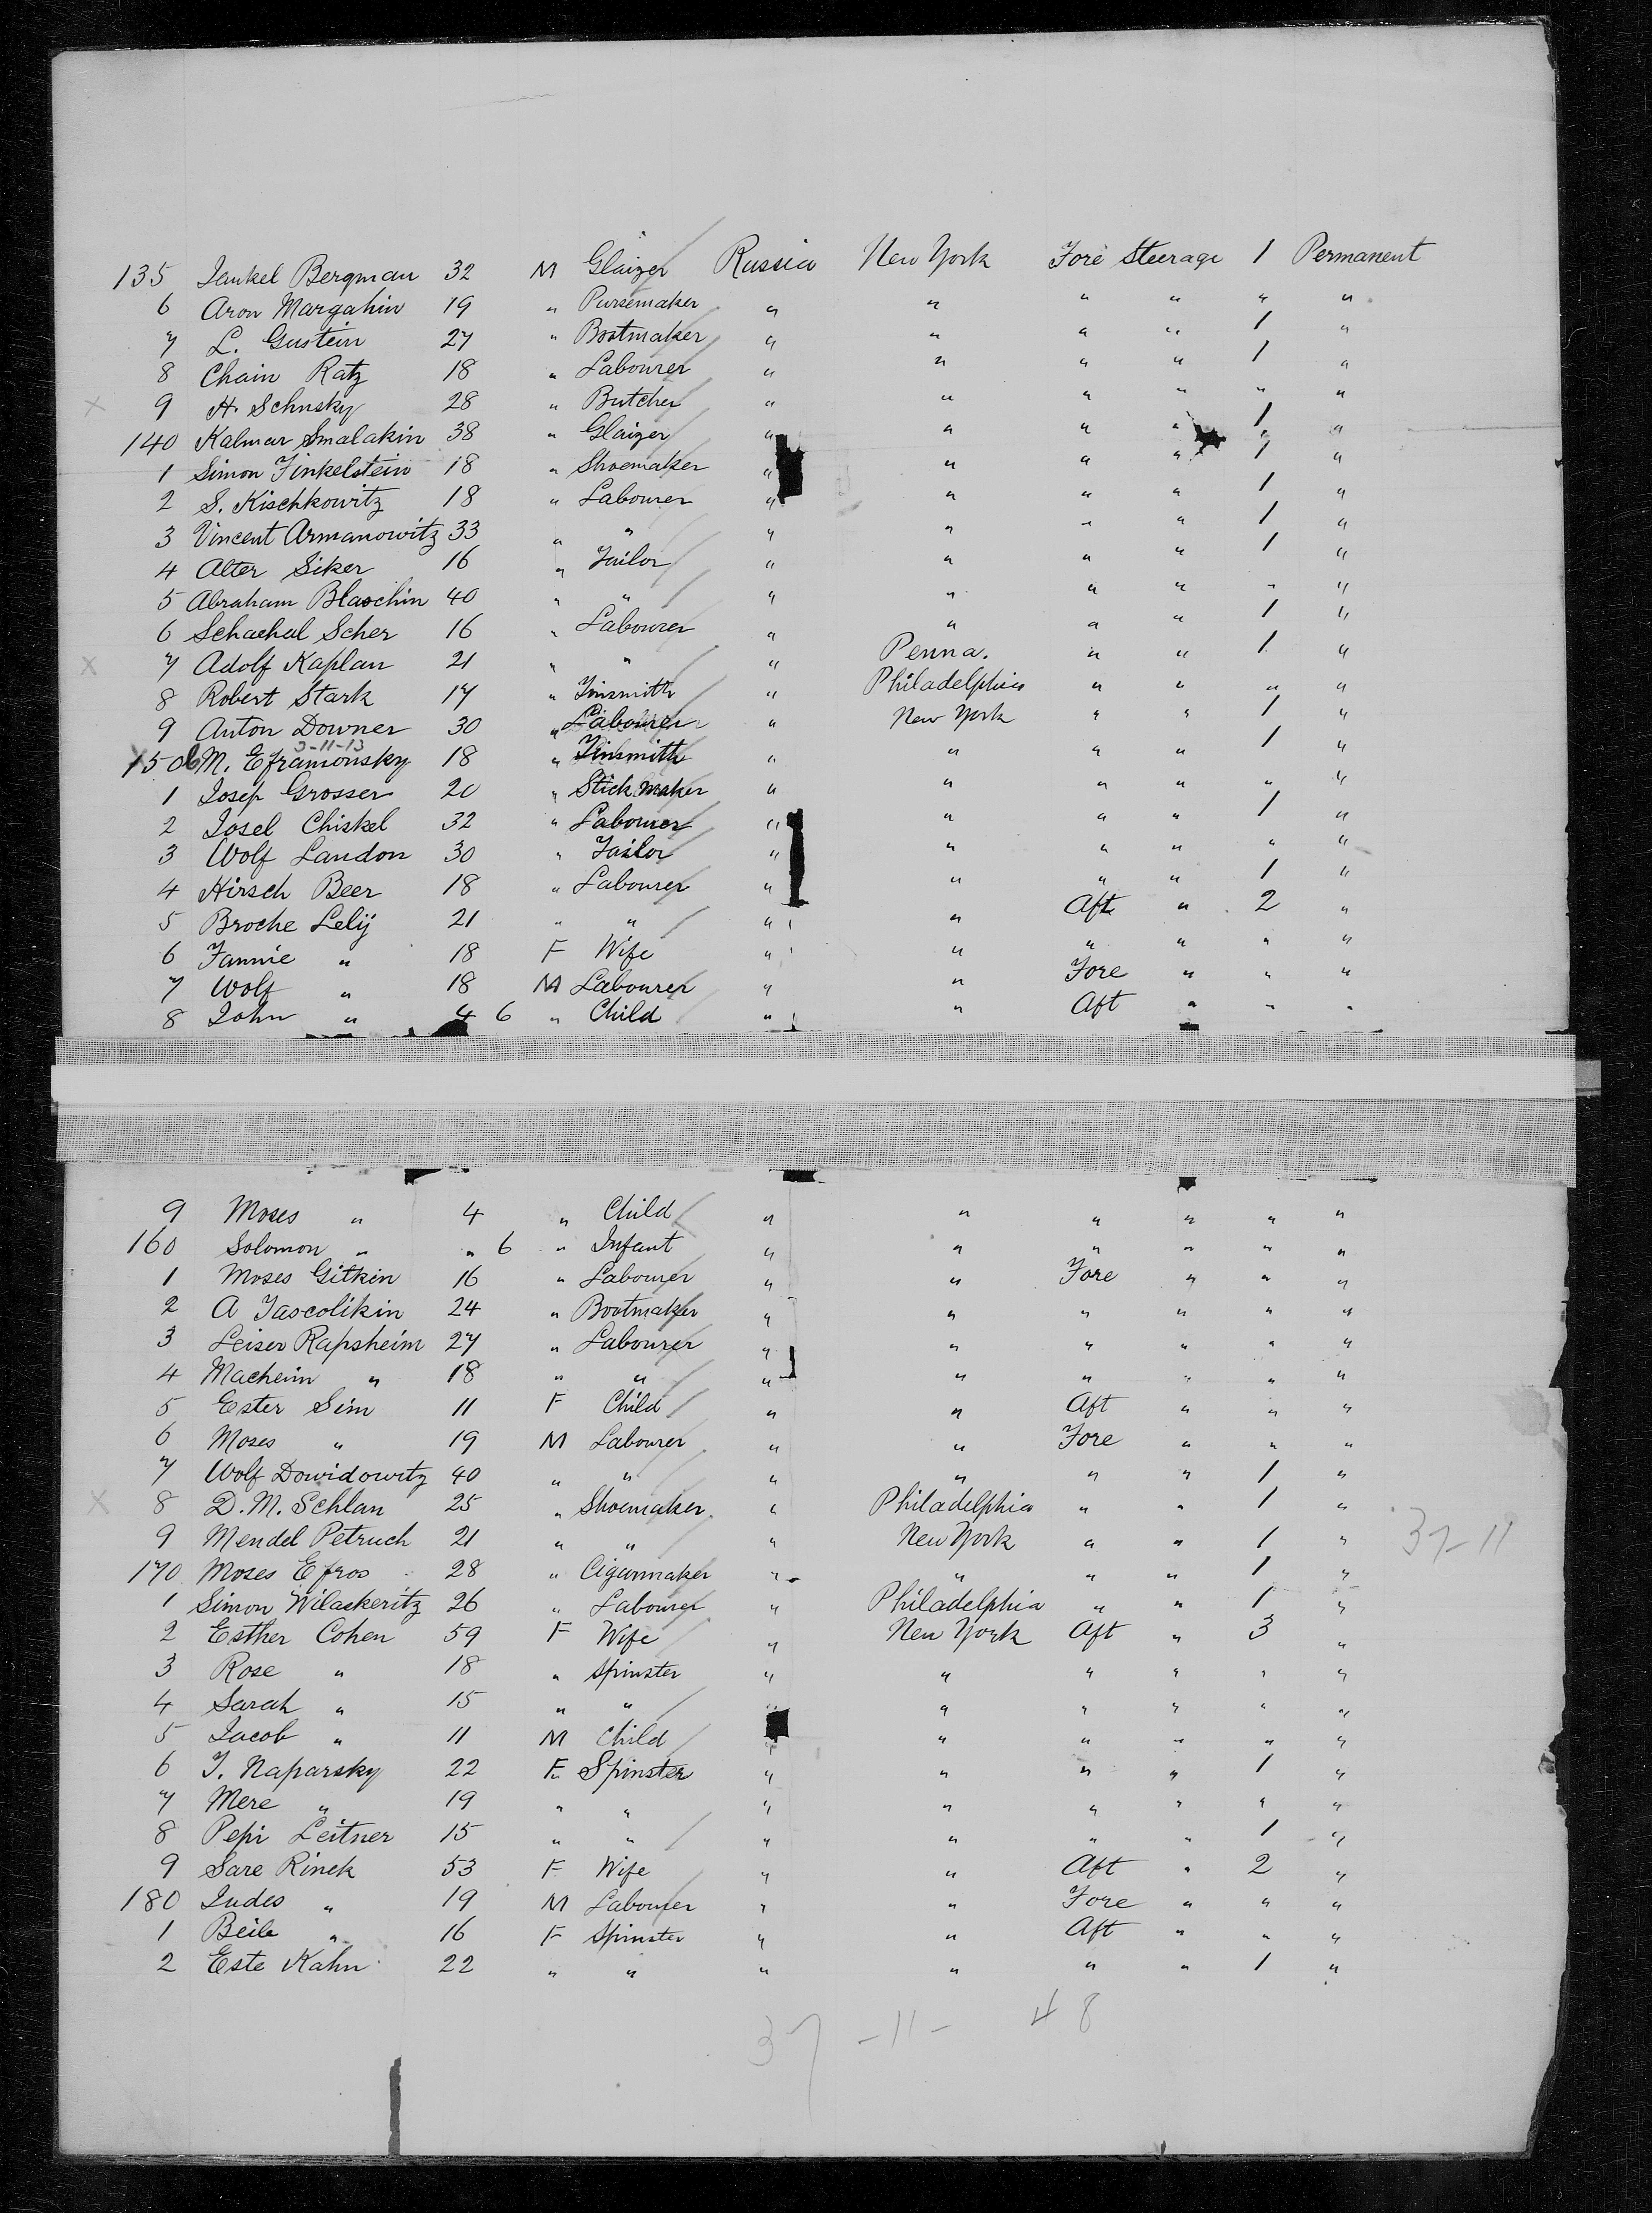 135 Jankel Bergman 32 M Glaizer Russia New York Fore Steerage 1 Permanent
6 Aron Margahin 19 " Pursemaker " " " " " "
7 L. Gustein 27 " Bootmaker " " " " 1 "
8 Chain Ratz 18 " Labourer " " " " 1 "
9 H. Schnsky 28 " Butcher " " " " " "
140 Kalmar Smalakin 38 " Glaizer " " " " 1 "
1 Simon Finkelstein 18 " Shoemaker " " " " 1 "
2 S. Kischkowitz 18 " Labourer " " " " 1 "
3 Vincent Armanowitz 33 " " " " " " 1 "
4 Alter Siker 16 " Tailor " " " " 1 "
5 Abraham Blaschin 40 " " " " " " " "
6 Schachal Scher 16 " Labourer " " " " 1 "
X 7 Adolf Kaplan 21 " " " Penna. " " 1 "
8 Robert Stark 17 " Tinsmith " Philadelphia " " " "
9 Anton Downer 30 " Labourer " New York " " 1 "
3-11-13
150 M. Eframonsky 18 " Tinsmith " " " " 1 "
1 Josep Grosser 20 " Stick Maker " " " " " "
2 Josel Chiskel 32 " Labourer " " " " 1 "
3 Wolf Landon 30 " Tailor " " " " " "
4 Hirsch Beer 18 " Labourer " " " " 1 "
5 Broche Lelij 21 " " " " Aft " 2 "
6 Fannie " 18 F Wife " " " " " "
7 Wolf " 18 M Labourer " " Fore " " "
8 John " 4 6 " Child " " Aft " " "
9 Moses " 4 " Child " " " " " "
160 Solomon " " 6 " Infant " " " " " "
1 Moses Gitkin 16 " Labourer " " Fore " " "
2 A Jascolikin 24 " Bootmaker " " " " " "
3 Leiser Rapsheim 27 " Labourer " " " " " "
4 Macheim " 18 " " " " " " " "
5 Ester Sim 11 F Child " " Aft " " "
6 Moses " 19 M Labourer " " Fore " " "
7 Wolf Dowidowitz 40 " " " " " " 1 "
X 8 D. M. Schlan 25 " Shoemaker " Philadelphia " " 1 "
9 Mendel Petruch 21 " " " New York " " 1 " 37-11
170 Moses Efros 28 " Cigarmaker " " " " 1 "
1 Simon Wilaskeritz 26 " Labourer " Philadelphia " " 1 "
2 Esther Cohen 59 F Wife " New York Aft " 3 "
3 Rose " 18 " Spinster " " " " " "
4 Sarah " 15 " " " " " " " "
5 Jacob " 11 M Child " " " " " "
6 J. Naparsky 22 F Spinster " " " " 1 "
7 Mere " 19 " " " " " " " "
8 Pepi Leitner 15 " " " " " " 1 "
9 Sare Rinek 53 F Wife " " Aft " 2 "
180 Judes " 19 M Labourer " " Fore " " "
1 Beile " 16 F Spinster " " Aft " " "
2 Este Kahn 22 " " " " " " 1 "
37 -11- 48